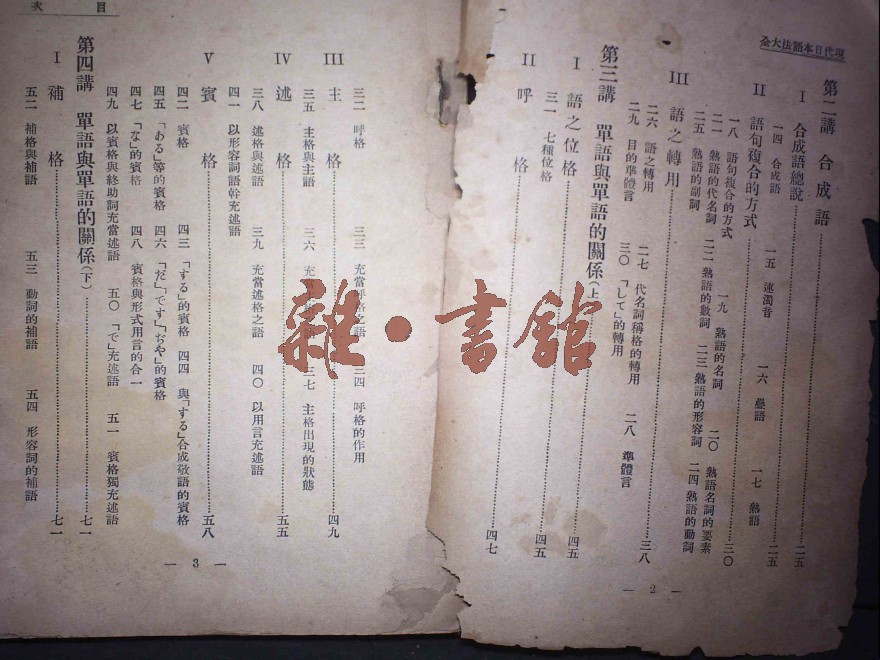 現代日本語法大全
第二講 合成語
I 合成語總說 二五
一四 合成語 一五 連濁音 一六 疊語 一七 熟語
II 語句複合的方式 二五
一八 語句複合的方式 一九 熟語的名詞 二〇 熟語名詞的要素
二一 熟語的代名詞 二二 熟語的數詞 二三 熟語的形容詞 二四 熟語的動詞
二五 熟語的副詞 三〇
III 語之轉用 三八
二六 語之轉用 二七 代名詞稱格的轉用 二八 準體言
二九 目的準體言 三〇 「して」的轉用
第三講 單語與單語的關係(上 四五
I 語之位格 四五
三一 七種位格
II 呼格 四七
— 2 —
目次
三二 呼格 三三 充當呼格之語 三四 呼格的作用
III 主格 四九
三五 主格與主語 三六 充當 三七 主格出現的狀態
IV 述格 五五
三八 述格與述語 三九 充當述格之語 四〇 以用言充述語
四一 以形容詞語幹充述語
V 賓格 五八
四二 賓格 四三 「する」的賓格 四四 與「する」合成敬語的賓格
四五 「ある」等的賓格 四六 「だ」「です」「ぢや」的賓格
四七 「な」的賓格 四八 賓格與形式用言的合一
四九 以賓格與終助詞充當述語 五〇 「で」充述語 五一 賓格獨充述語
第四講 單語與單語的關係(下) 七一
I 補格 七一
五二 補格與補語 五三 動詞的補語 五四 形容詞的補語
— 3 —
雜·書館